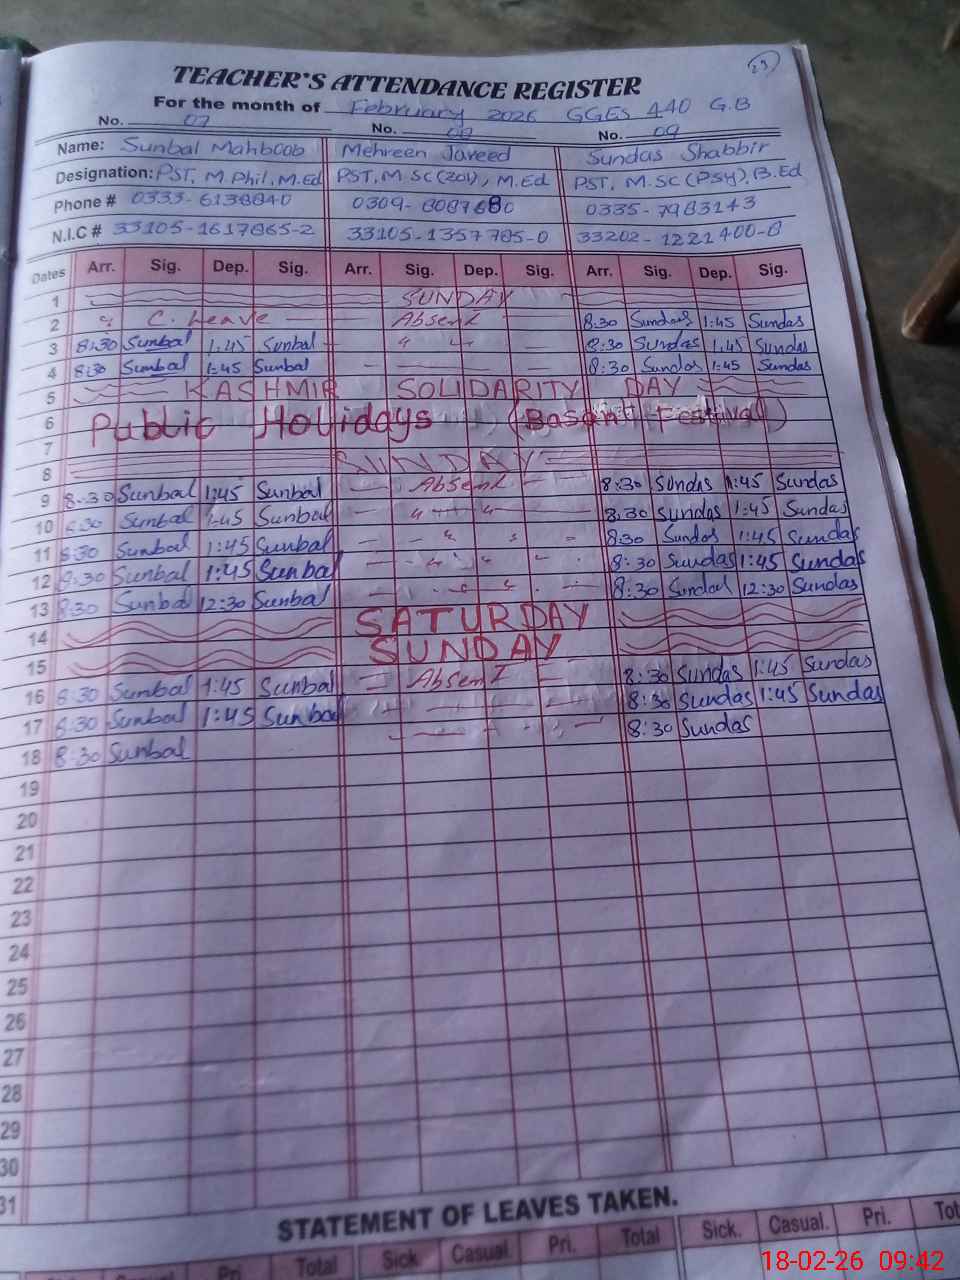 23
TEACHER'S ATTENDANCE REGISTER
For the month of February 2026 GGES 440 G.B
No. 07 No. 08 No. 09
Name: Sunbal Mahboob Mehreen Javeed Sundas Shabbir
Designation: PST, M.Phil, M.Ed PST, M.SC(ZOO), M.Ed PST, M.SC(PSY), B.Ed
Phone # 0333-6138840 0309-8087680 0335-7983143
N.I.C # 33105-1617865-2 33105-1357785-0 33202-1221400-8
Dates Arr. Sig. Dep. Sig. Arr. Sig. Dep. Sig. Arr. Sig. Dep. Sig.
1 SUNDAY
2 C. Leave Absent 8:30 Sundas 1:45 Sundas
3 8:30 Sunbal 1:45 Sunbal " " 8:30 Sundas 1:45 Sundas
4 8:30 Sunbal 1:45 Sunbal 8:30 Sundas 1:45 Sundas
5 KASHMIR SOLIDARITY DAY
6 Public Holidays (Basant Festival)
7
8 SUNDAY
9 8:30 Sunbal 1:45 Sunbal Absent 8:30 Sundas 1:45 Sundas
10 8:30 Sunbal 1:45 Sunbal " " 8:30 Sundas 1:45 Sundas
11 8:30 Sunbal 1:45 Sunbal " " 8:30 Sundas 1:45 Sundas
12 8:30 Sunbal 1:45 Sunbal " " 8:30 Sundas 1:45 Sundas
13 8:30 Sunbal 12:30 Sunbal " " 8:30 Sundas 12:30 Sundas
14 SATURDAY
15 SUNDAY
16 8:30 Sunbal 1:45 Sunbal Absent 8:30 Sundas 1:45 Sundas
17 8:30 Sunbal 1:45 Sunbal 8:30 Sundas 1:45 Sundas
18 8:30 Sunbal 8:30 Sundas
19
20
21
22
23
24
25
26
27
28
29
30
31
STATEMENT OF LEAVES TAKEN.
Casual Pri. Total Sick Casual. Pri. Total Sick. Casual. Pri.
18-02-26 09:42